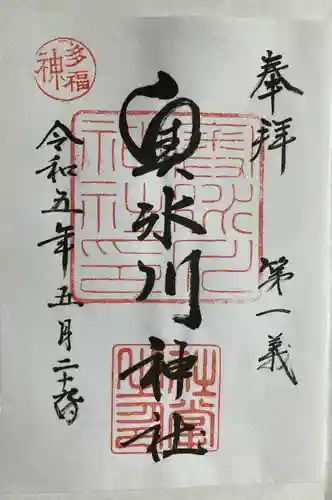 奉拝
第一義
奥氷川神社
令和五年五月二十一日
多福神